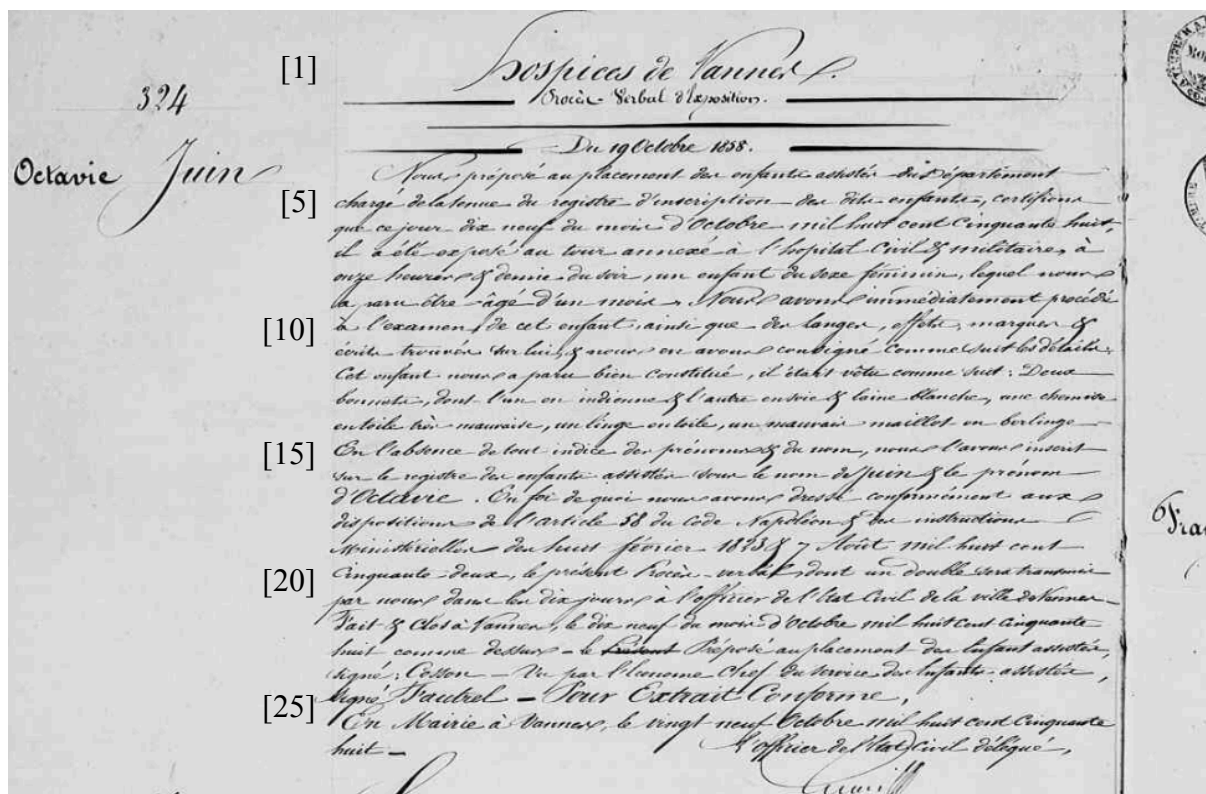 [1] Hospices de Vannes.
324
Procès-Verbal d'Exposition.
Du 19 Octobre 1858.
Octavie Juin
Nous, préposé au placement des enfants assistés du Département
[5] chargé de la tenue du registre d'inscription des dits enfants, certifions
que ce jour dix neuf du mois d'Octobre mil huit cent cinquante huit,
il a été exposé au tour annexé à l'hopital civil & militaire, à
onze heures & demie du soir, un enfant du sexe féminin, lequel nous
a paru être âgé d'un mois. Nous avons immédiatement procédé
[10] à l'examen de cet enfant, ainsi que des langes, effets, marques &
écrits trouvés sur lui, & nous en avons consigné comme suit les détails.
Cet enfant nous a paru bien constitué, il était vêtu comme suit : Deux
bonnets, dont l'un en indienne & l'autre en soie & laine blanche, une chemise
en toile très mauvaise, un linge en toile, un mauvais maillot en berlinge
[15] En l'absence de tout indice des prénoms & du nom, nous l'avons inscrit
sur le registre des enfants assistés sous le nom de Juin & le prénom
d'Octavie. En foi de quoi nous avons dressé conformément aux
dispositions de l'article 58 du Code Napoléon & des instructions
Ministérielles des huit février 1823 & 7 Août mil huit cent
[20] Cinquante deux, le présent Procès-verbal, dont un double sera transmis
par nous dans les dix jours à l'officier de l'Etat Civil de la ville de Vannes.
Fait & clos à Vannes, le dix neuf du mois d'Octobre mil huit cent cinquante
huit comme dessus - le Présent Préposé au placement des Enfants assistés,
signé : Cosson - Vu par l'Econome Chef du service des Enfants assistés,
[25] signé Fautrel - Pour Extrait Conforme,
En Mairie à Vannes, le vingt neuf Octobre mil huit cent cinquante
huit - L'officier de l'Etat Civil délégué,